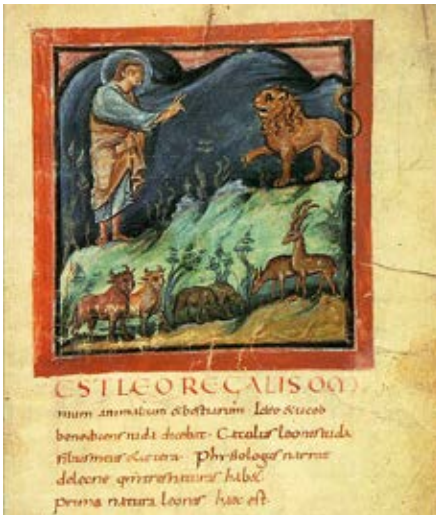 EST LEO REGALIS OM
nium animalium & bestiarum· Ideo & iacob
benedicens iuda dicebat· Catulus leonis iuda
filius meus & cetera· Phisiologus narrat
deleone tres naturas habet
prima natura leonis haec est·